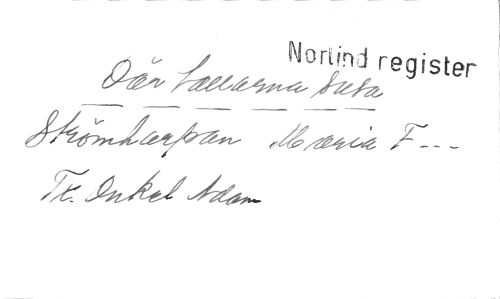 Norlind register
Där tallarna susa
Strömharpan Maria F---
Tx. Onkel Adam